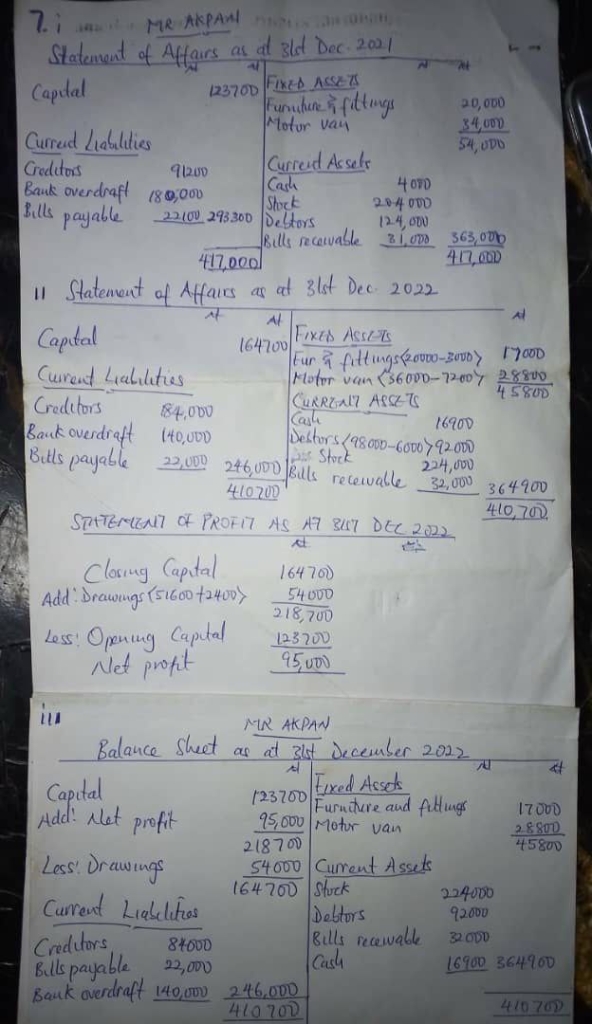 7. i MR AKPAN
Statement of Affairs as at 31st Dec. 2021
₦ ₦ ₦ ₦
Capital 123700 FIXED ASSETS
Furniture & fittings 20,000
Motor van 34,000
54,000
Current Liabilities Current Assets
Creditors 91200 Cash 4000
Bank overdraft 180,000 Stock 204000
Bills payable 22100 293300 Debtors 124,000
Bills receivable 31,000 363,000
417,000 417,000
ii Statement of Affairs as at 31st Dec. 2022
₦ ₦ ₦
Capital 164700 FIXED ASSETS
Fur & fittings <20000-3000> 17000
Current Liabilities Motor van <36000-7200> 28800
45800
Creditors 84,000 CURRENT ASSETS
Cash 16900
Bank overdraft 140,000 Debtors <98000-6000> 92000
Stock 224,000
Bills payable 22,000 246,000 Bills receivable 32,000 364900
410700 410,700
STATEMENT OF PROFIT AS AT 31ST DEC 2022
₦
Closing Capital 164700
Add: Drawings <51600+2400> 54000
218,700
Less: Opening Capital 123700
Net profit 95,000
iii MR AKPAN
Balance Sheet as at 31st December 2022
₦ ₦ ₦
Capital 123700 Fixed Assets
Add: Net profit 95,000 Furniture and fittings 17000
218700 Motor van 28800
45800
Less: Drawings 54000 Current Assets
164700 Stock 224000
Current Liabilities Debtors 92000
Creditors 84000 Bills receivable 32000
Bills payable 22,000 Cash 16900 364900
Bank overdraft 140,000 246,000
410700 410700